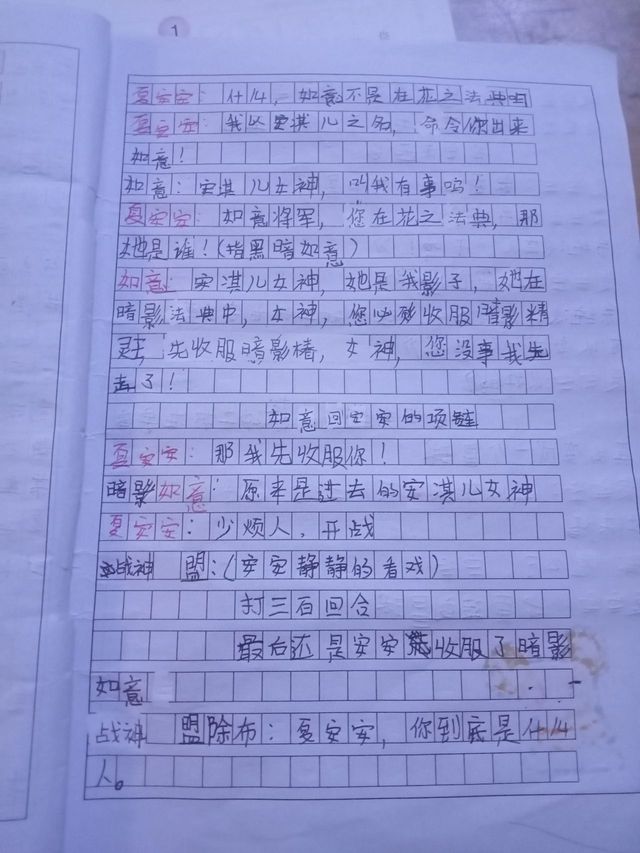 1
夏安安：什么，如意不是在花之法典吗
夏安安：我以安淇儿之名，命令你出来
如意！
如意：安淇儿女神，叫我有事吗！
夏安安：如意将军，您在花之法典，那
她是谁！(指黑暗如意)
如意：安淇儿女神，她是我影子，她在
暗影法典中，女神，您必须收服暗影精
灵王，先收服暗影楮，女神，您没事我先
走了！
如意回安安的项链
夏安安：那我先收服你！
暗影如意：原来是过去的安淇儿女神
夏安安：少烦人，开战
战神 盟：(安安静静的看戏)
打三百回合
最后还是安安收服了暗影
如意
战神 盟除布：夏安安，你到底是什么
人。